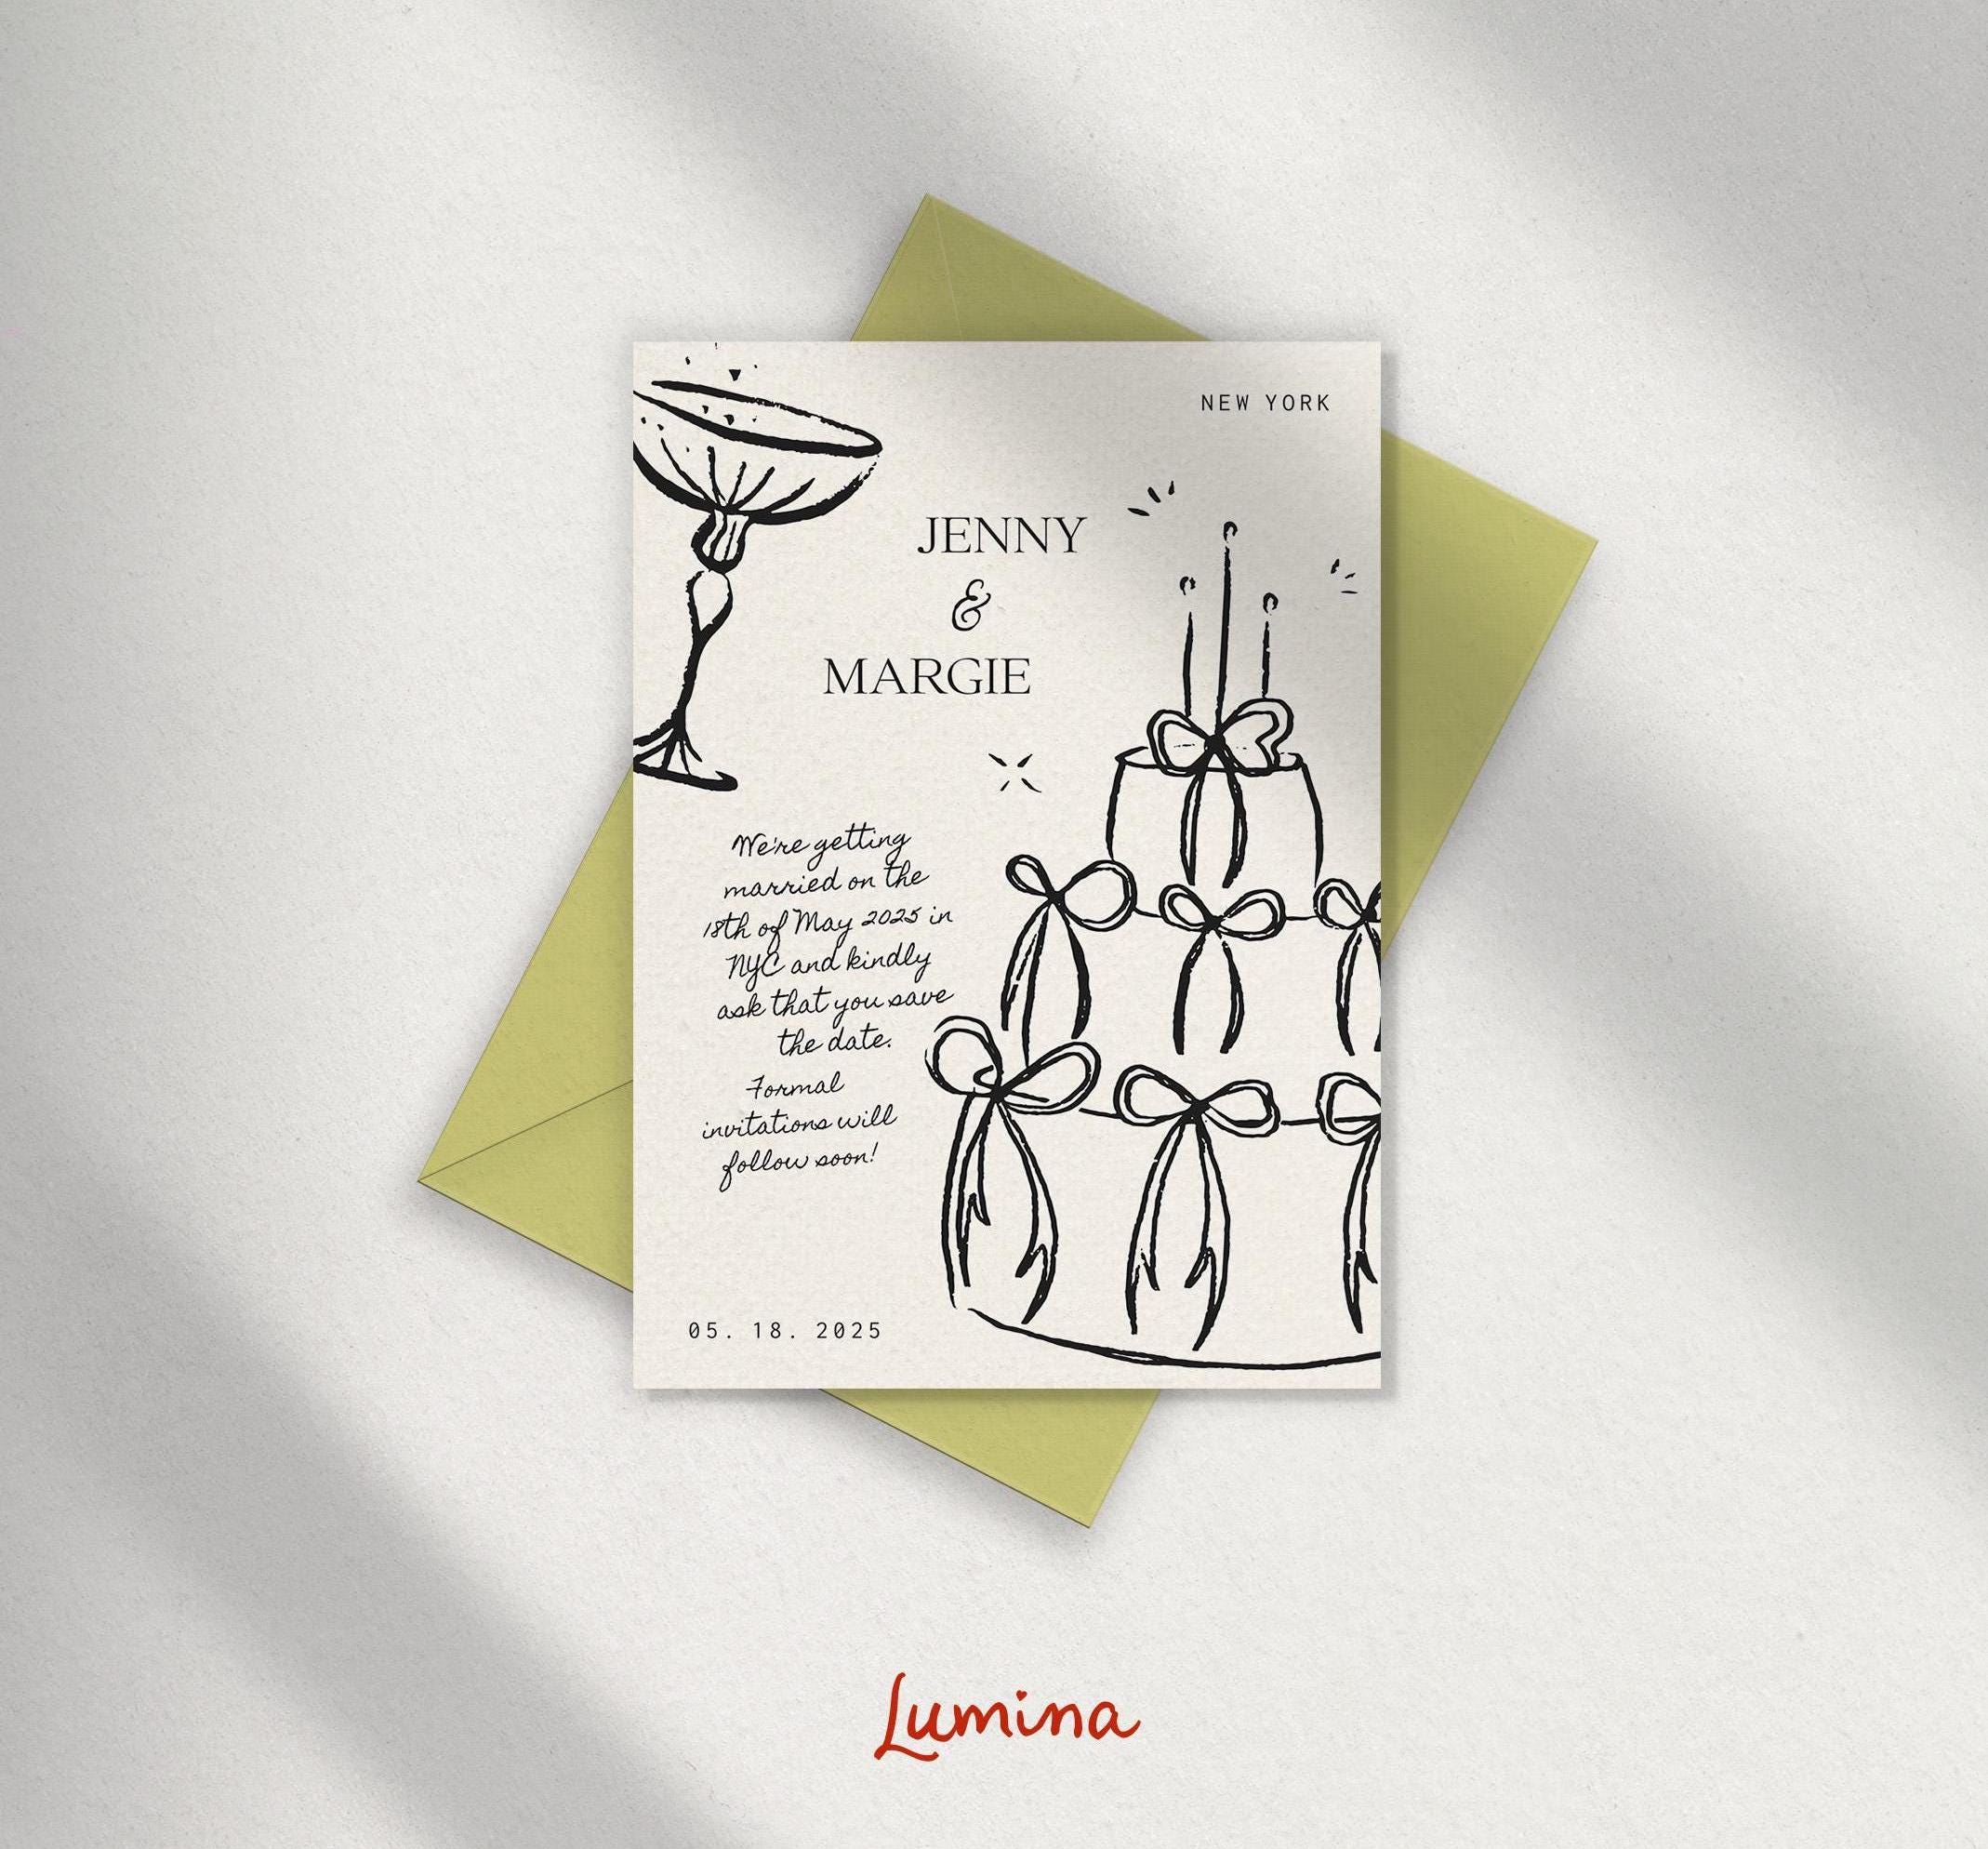 NEW YORK
JENNY
&
MARGIE
We're getting
married on the
18th of May 2025 in
NYC and kindly
ask that you save
the date.
Formal
invitations will
follow soon!
05. 18. 2025
Lumina